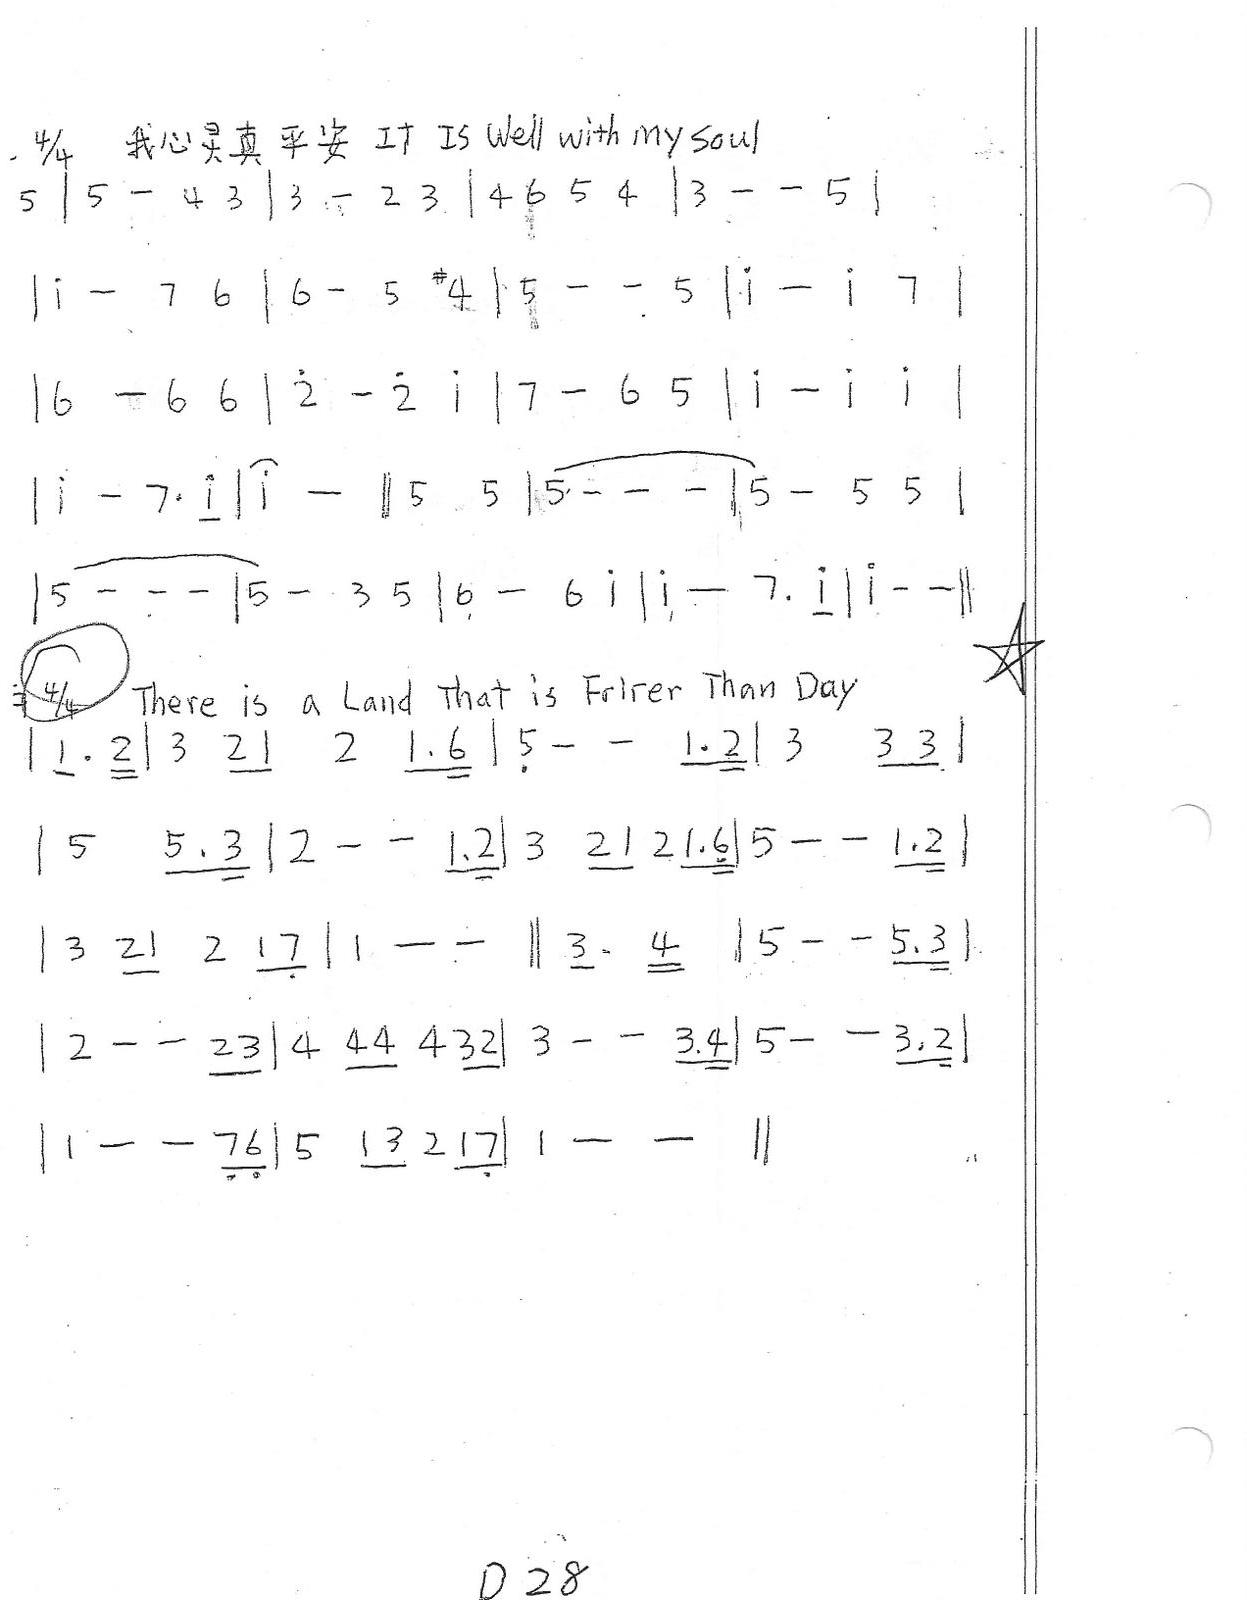 4/4 我心灵真平安 IT IS Well with My Soul
5 | 5 – 4 3 | 3 – 2 3 | 4 6 5 4 | 3 – – 5 |
| i – 7 6 | 6 – 5 #4 | 5 – – 5 | i – i 7 |
| 6 – 6 6 | 2̇ – 2̇ i | 7 – 6 5 | i – i i |
| i – 7. i | i – || 5 5 | 5 – – – | 5 – 5 5 |
| 5 – – – | 5 – 3 5 | 6 – 6 i | i – 7. i | i – – ||
4/4 There is a Land That is Frirer Than Day
| 1. 2 | 3 21 2 1.6 | 5̣ – – 1.2 | 3 33 |
| 5 5.3 | 2 – – 1.2 | 3 21 2 1.6̣ | 5 – – 1.2 |
| 3 21 2 17̣ | 1 – – || 3. 4 | 5 – – 5.3 |
| 2 – – 23 | 4 44 4 32 | 3 – – 3.4 | 5 – – 3.2 |
| 1 – – 7̣6̣ | 5 13 2 17̣ | 1 – – ||
D 28